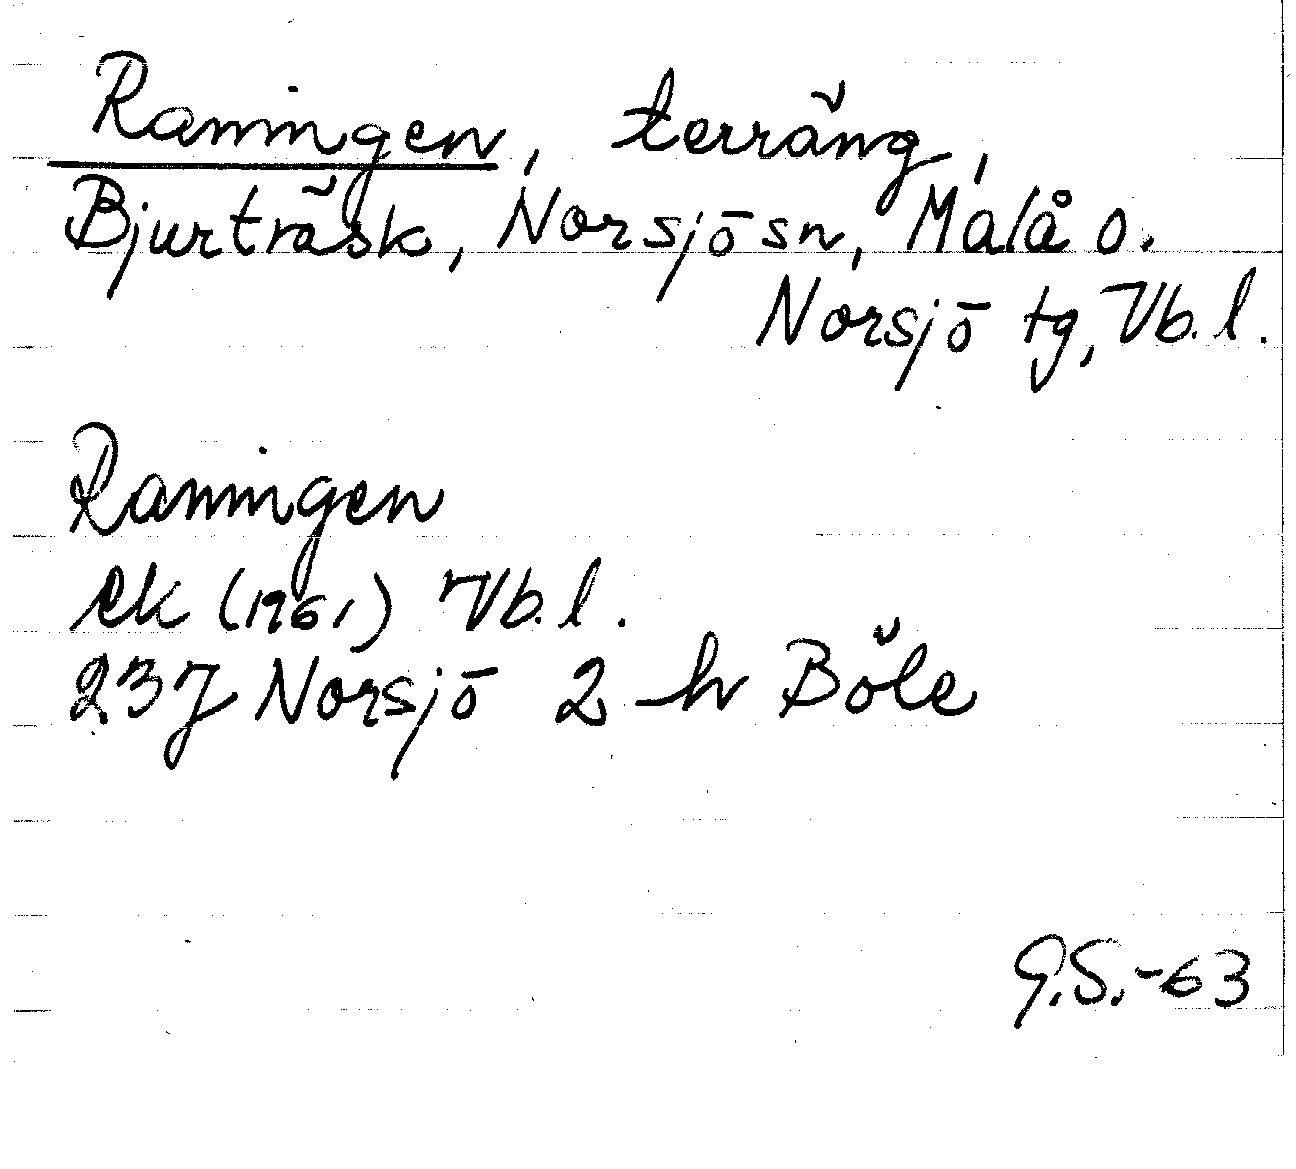 Ranningen, terräng,
Bjurträsk, Norsjö sn, Malå o.
Norsjö tg, Vb. l.
Ranningen
ek (1961) Vb. l.
23J Norsjö 2 h Böle
G.S.-63